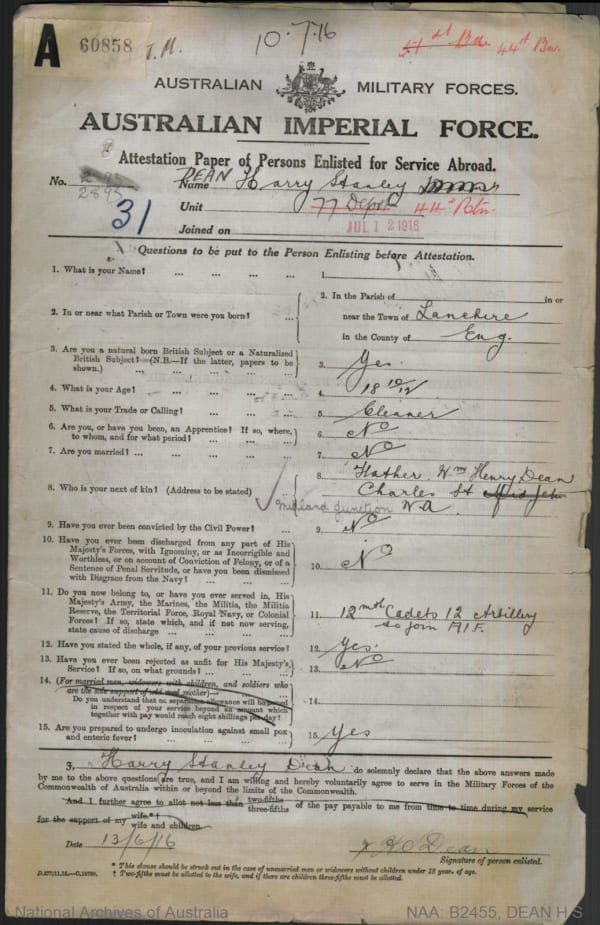 A 60858 T.M. 10.7.16 51st Btn. 44th Bn.
AUSTRALIAN MILITARY FORCES.
AUSTRALIAN IMPERIAL FORCE.
Attestation Paper of Persons Enlisted for Service Abroad.
No. 2895 Name DEAN Harry Stanley
31 Unit 77 Depot 44th Btn.
Joined on JUL 12 1916
Questions to be put to the Person Enlisting before Attestation.
1. What is your Name? ... ... ... ... 1.
2. In or near what Parish or Town were you born? ... 2. In the Parish of in or
near the Town of Lanchire
in the County of Eng.
3. Are you a natural born British Subject or a Naturalized
British Subject? (N.B.—If the latter, papers to be
shown.) ... ... ... ... ... 3. Yes.
4. What is your Age? ... ... ... ... 4. 18 10/12
5. What is your Trade or Calling? ... ... ... 5. Cleaner
6. Are you, or have you been, an Apprentice? If so, where,
to whom, and for what period? ... ... ... 6. No
7. Are you married? ... ... ... ... ... 7. No
8. Who is your next of kin? (Address to be stated) ... 8. Father Wm Henry Dean
Charles St
Midland Junction W.A.
9. Have you ever been convicted by the Civil Power? ... 9. No
10. Have you ever been discharged from any part of His
Majesty's Forces, with Ignominy, or as Incorrigible and
Worthless, or on account of Conviction of Felony, or of a
Sentence of Penal Servitude, or have you been dismissed
with Disgrace from the Navy? ... ... ... 10. No
11. Do you now belong to, or have you ever served in, His
Majesty's Army, the Marines, the Militia, the Militia
Reserve, the Territorial Force, Royal Navy, or Colonial
Forces? If so, state which, and if not now serving,
state cause of discharge ... ... ... ... 11. 12 mth Cadets 12 Artillery
to join A.I.F.
12. Have you stated the whole, if any, of your previous service? 12. Yes.
13. Have you ever been rejected as unfit for His Majesty's
Service? If so, on what grounds? ... ... ... 13. No
14. (For married men, widowers with children, and soldiers who
are the sole support of widowed mother)—
Do you understand that no separation allowance will be issued
in respect of your service beyond an amount which
together with pay would reach eight shillings per day? 14.
15. Are you prepared to undergo inoculation against small pox
and enteric fever? ... ... ... ... 15. Yes
I, Harry Stanley Dean do solemnly declare that the above answers made
by me to the above questions are true, and I am willing and hereby voluntarily agree to serve in the Military Forces of the
Commonwealth of Australia within or beyond the limits of the Commonwealth.
*And I further agree to allot not less than two-fifths three-fifths of the pay payable to me from time to time during my service
for the support of my wife.*† wife and children.
Date 13/6/16 x H S Dean
Signature of person enlisted.
* This clause should be struck out in the case of unmarried men or widowers without children under 18 years of age.
† Two-fifths must be allotted to the wife, and if there are children three-fifths must be allotted.
National Archives of Australia NAA: B2455, DEAN H S